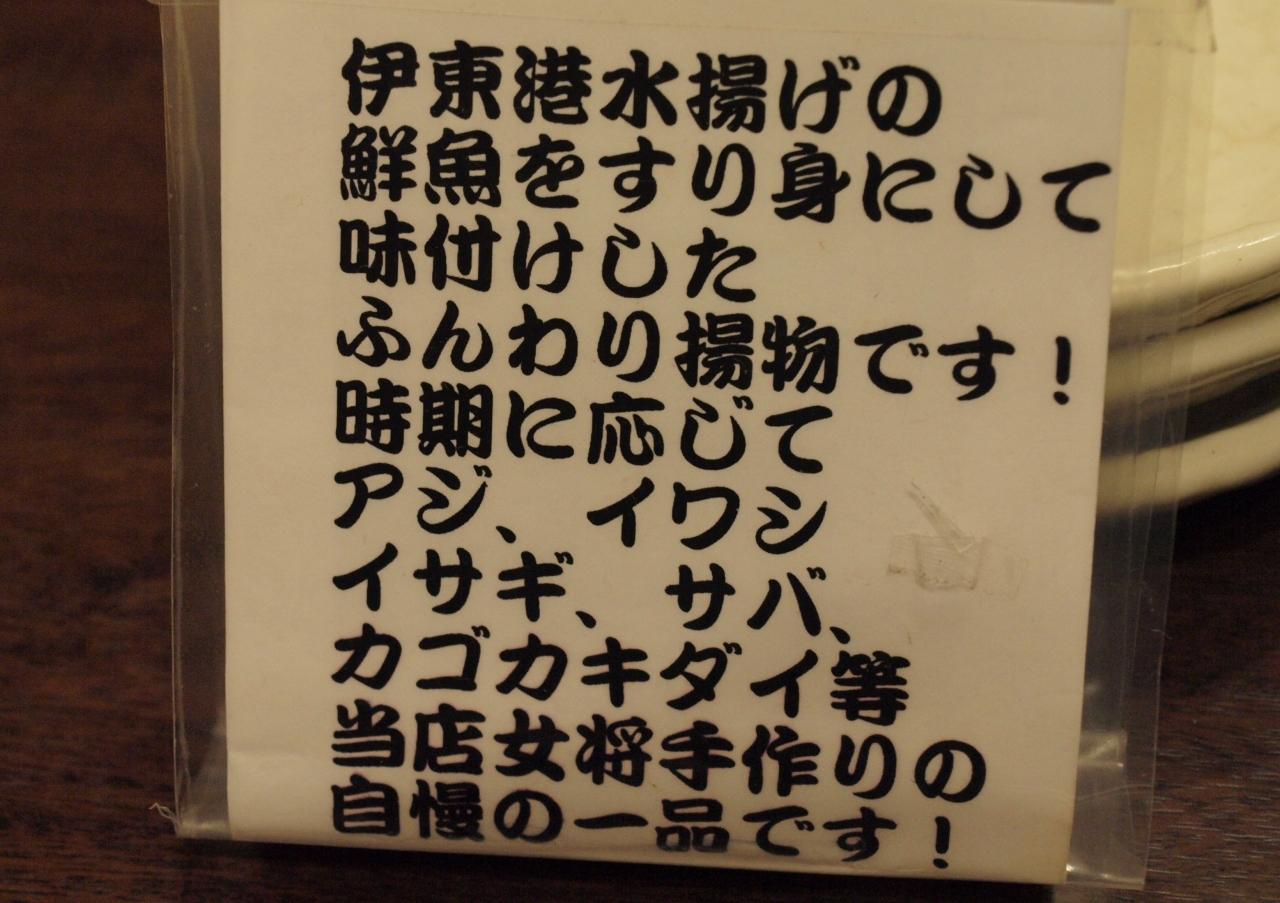 伊東港水揚げの
鮮魚をすり身にして
味付けした
ふんわり揚物です！
時期に応じて
アジ、イワシ
イサギ、サバ、
カゴカキダイ等
当店女将手作りの
自慢の一品です！